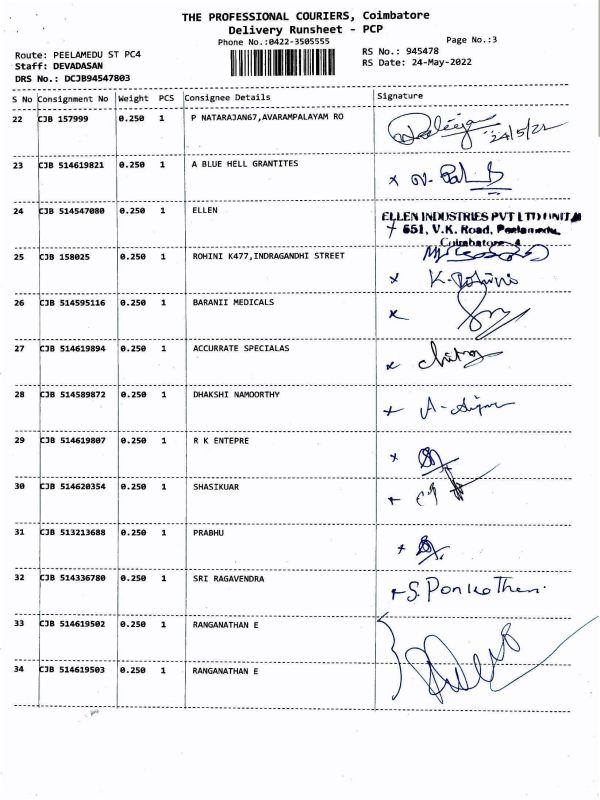 THE PROFESSIONAL COURIERS, Coimbatore
Delivery Runsheet - PCP
Phone No.:0422-3505555
Page No.:3
Route: PEELAMEDU ST PC4
RS No.: 945478
Staff: DEVADASAN
RS Date: 24-May-2022
DRS No.: DCJB94547803
S No Consignment No Weight PCS Consignee Details Signature
22 CJB 157999 0.250 1 P NATARAJAN67,AVARAMPALAYAM RO
24/5/22
23 CJB 514619821 0.250 1 A BLUE HELL GRANTITES
24 CJB 514547080 0.250 1 ELLEN
ELLEN INDUSTRIES PVT LTD UNIT
651, V.K. Road, Peelamedu,
Coimbatore-4
25 CJB 158025 0.250 1 ROHINI K477,INDRAGANDHI STREET
x K. Rohini
26 CJB 514595116 0.250 1 BARANII MEDICALS
x
27 CJB 514619894 0.250 1 ACCURRATE SPECIALAS
x
28 CJB 514589872 0.250 1 DHAKSHI NAMOORTHY
29 CJB 514619807 0.250 1 R K ENTEPRE
x
30 CJB 514620354 0.250 1 SHASIKUAR
31 CJB 513213688 0.250 1 PRABHU
32 CJB 514336780 0.250 1 SRI RAGAVENDRA
33 CJB 514619502 0.250 1 RANGANATHAN E
34 CJB 514619503 0.250 1 RANGANATHAN E